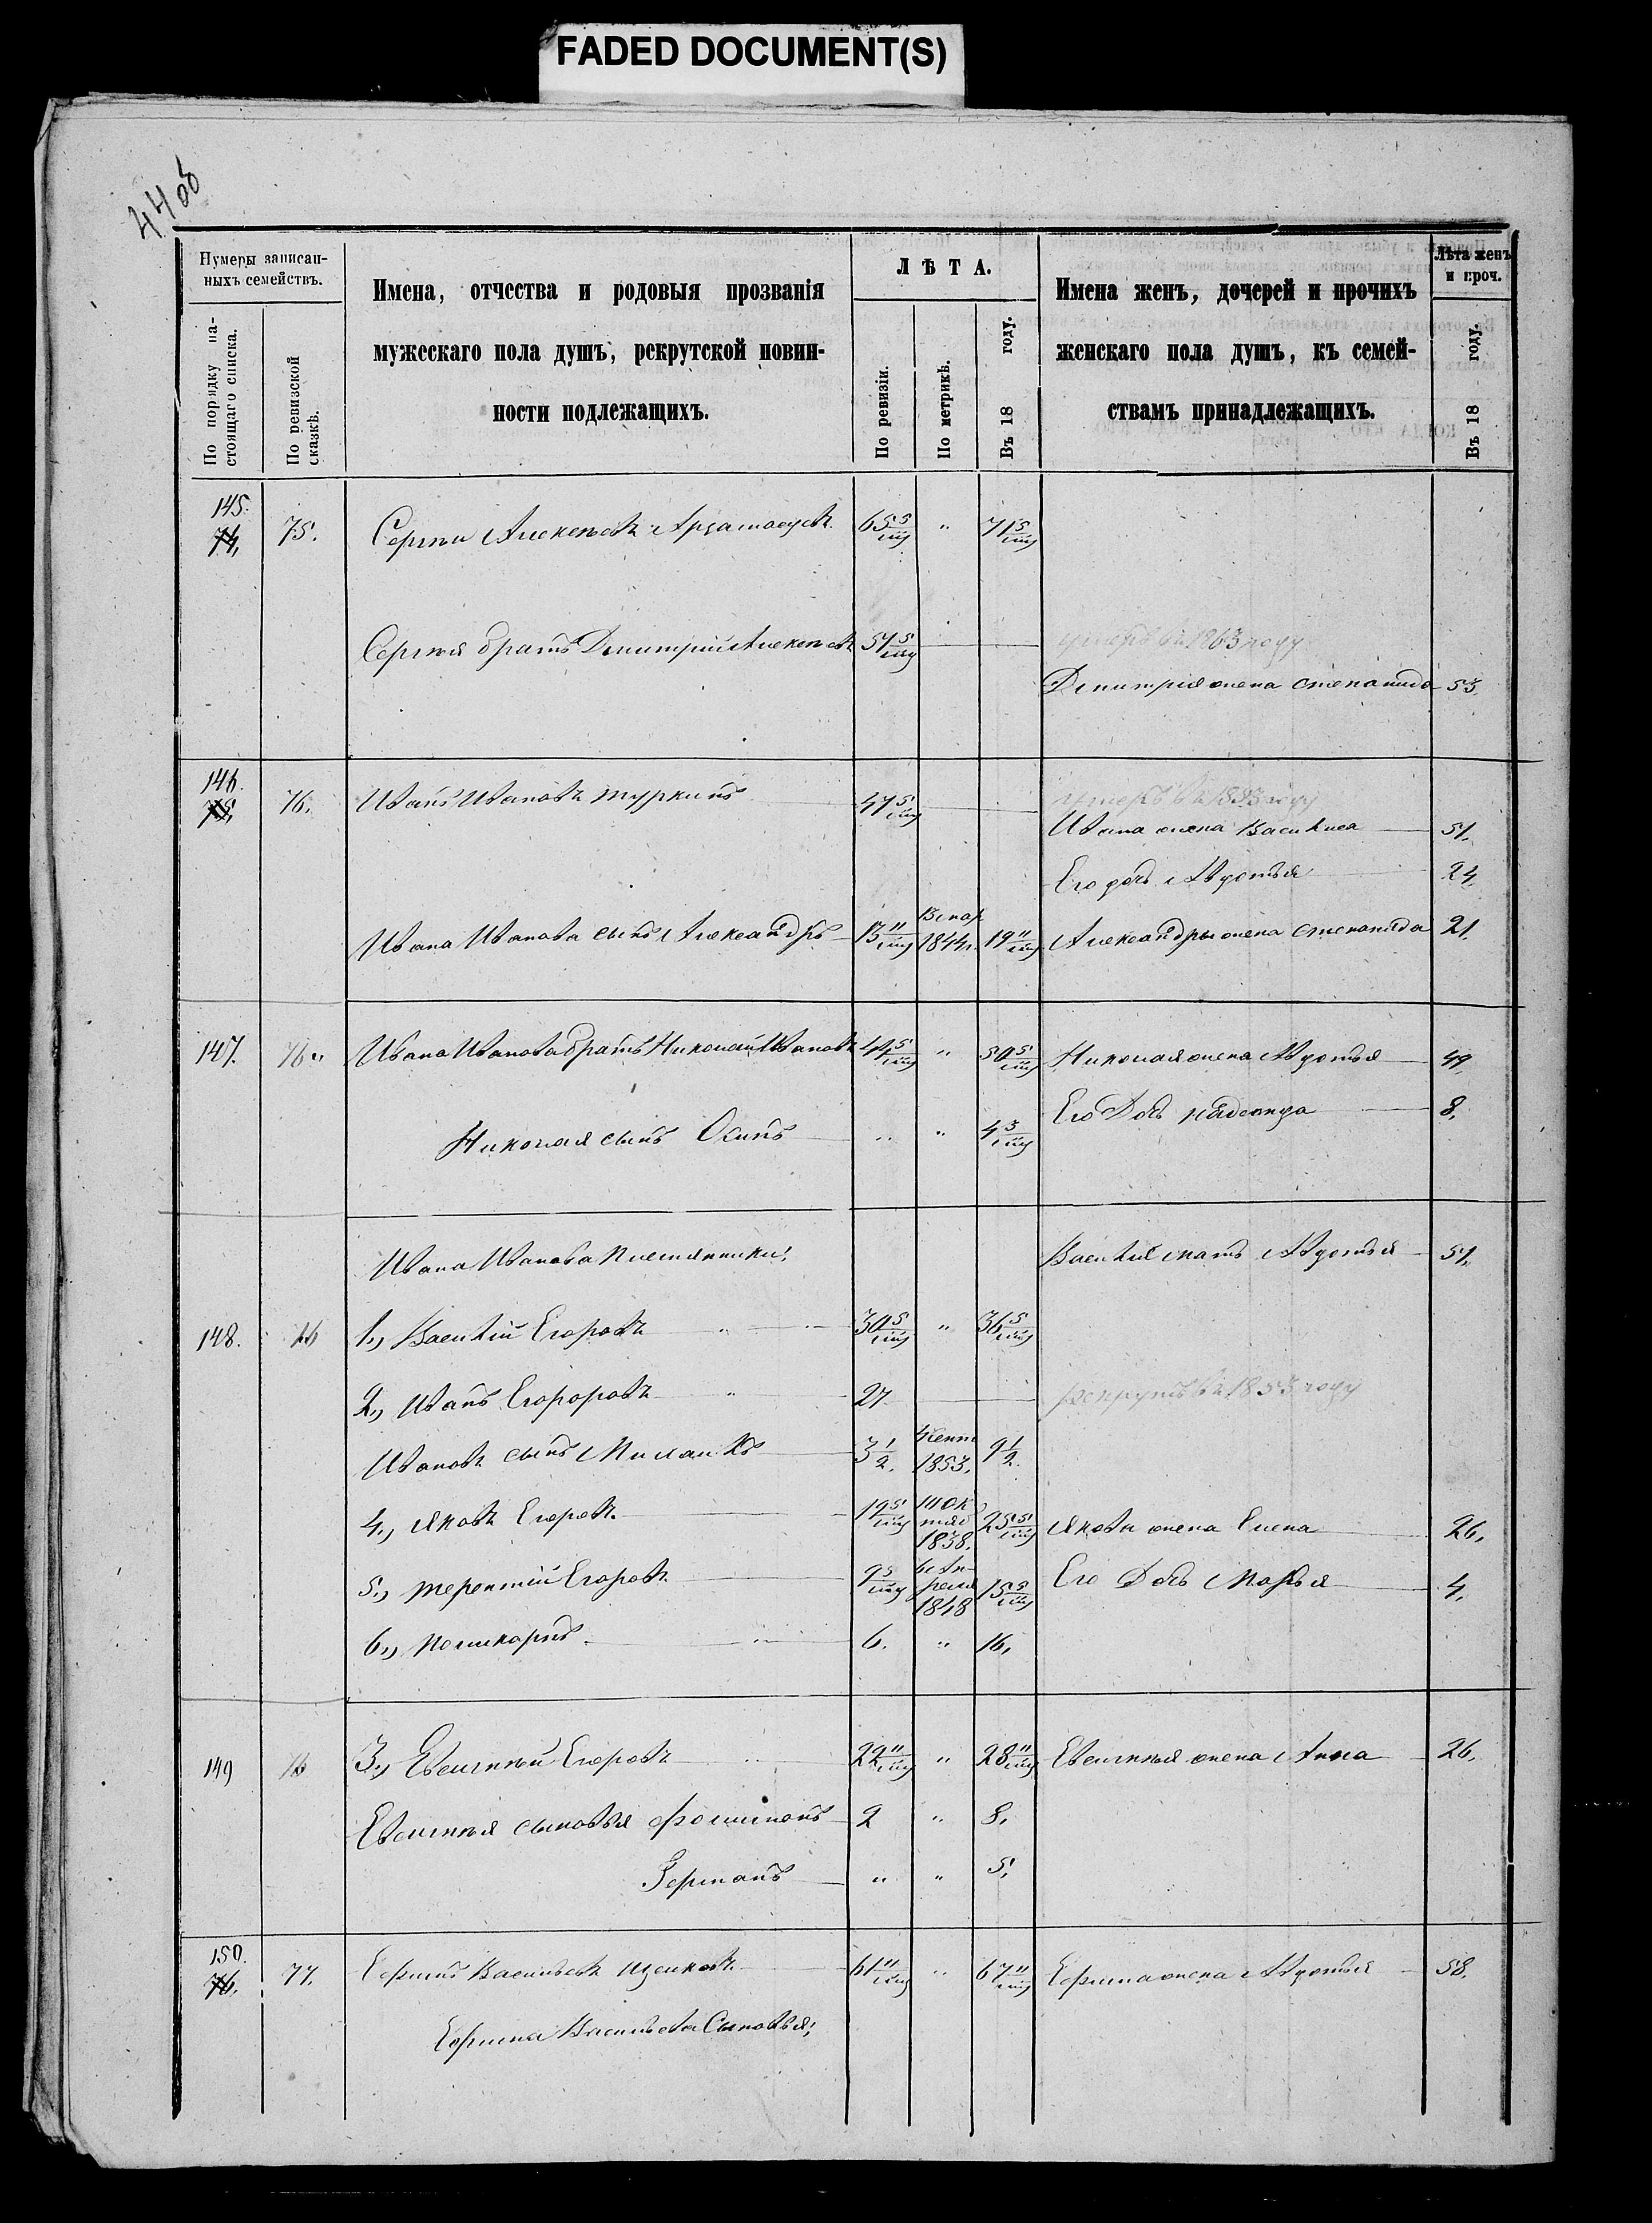 FADED DOCUMENT(S)
44 об
Нумеры записан-
ныхъ семействъ.
По порядку на-
стоящаго списка.
По ревизской
сказкѣ.
Имена, отчества и родовыя прозванія
мужескаго пола душъ, рекрутской повин-
ности подлежащихъ.
ЛѢТА.
По ревизіи.
По метрикѣ.
Въ 18 году.
Имена женъ, дочерей и прочихъ
женскаго пола душъ, къ семей-
ствамъ принадлежащихъ.
Лѣта женъ
и проч.
Въ 18 году.
145. 74, 75. Сергѣй Алексѣевъ 65 5/ " 71 5/
Сергѣя братъ Дмитрий Алексѣевъ 57 5/ умеръ въ 1863 году
Дмитрия жена Степанида 53.
146. 75, 76. Иванъ Ивановъ Туркинъ 47 5/ умеръ въ году
Ивана жена Василиса 51.
Его дочь Авдотья 24,
Ивана Иванова сынъ Александръ 13 11/ 1844 г. 19 11/ Александры жена Степанида 21.
147. 76 " Ивана Иванова братъ Николай Ивановъ 44 5/ " 50 5/ Николая жена Авдотья 49,
Его Дочь Надежда 8,
Николая сынъ Осипъ " " 4 5/
Ивана Иванова племянники: Василия мать Авдотья 57,
148. 76 1., Василий Егоровъ " 30 5/ " 36 5/
2., Иванъ Егороровъ " 27 рекрутъ въ 1853 году
Ивановъ сынъ 3 1/2. 1853. 9 1/2.
4., Яковъ Егоровъ. 19 5/ Октяб 1838. 25 5/ Якова жена Елена 26,
5., Терентий Егоровъ 9 5/ 6 Апреля 1848 15 5/ Его Дочь Марья 4,
6., Поликарпъ " 6. " 16,
149 76 3., Евлигней Егоровъ " 22 11/ " 28 11/ Евлигнея жена Анна 26,
Евлигнея сыновья Филимонъ 2 " 8,
Германъ " " 5,
150. 76. 77. Ефимъ Васильевъ 61 11/ " 67 11/ Ефима жена Авдотья 58.
Ефима Васильева Сыновья: